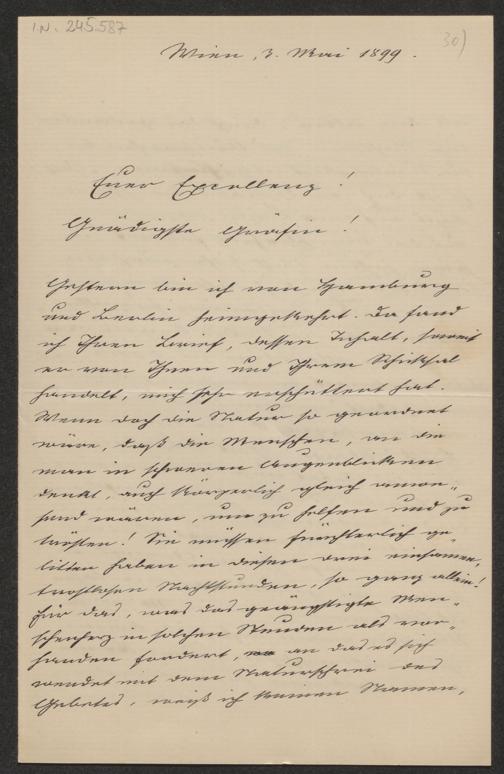 I.N. 245.587
30)
Wien, 3. Mai 1899.
Euer Excellenz!
Gnädigste Gräfin!
Gestern bin ich von Hamburg
und Berlin heimgekehrt. Da fand
ich Ihren Brief, dessen Inhalt, soweit
er von Ihnen und Ihrem Schicksal
handelt, mich sehr erschüttert hat.
Wenn doch die Natur so geordnet
wäre, daß die Menschen, an die
man in schweren Augenblicken
denkt, auch körperlich gleich anwe-
send wären, um zu helfen und zu
trösten! Sie müssen fürchterlich ge-
litten haben in diesen drei einsamen,
trostlosen Nachtstunden, so ganz allein!
Für das, was das geängstigte Men-
schenherz in solchen Stunden als vor-
handen fordert, an das es sich
wendet mit dem Naturschrei des
Gebetes, weiß ich keinen Namen,